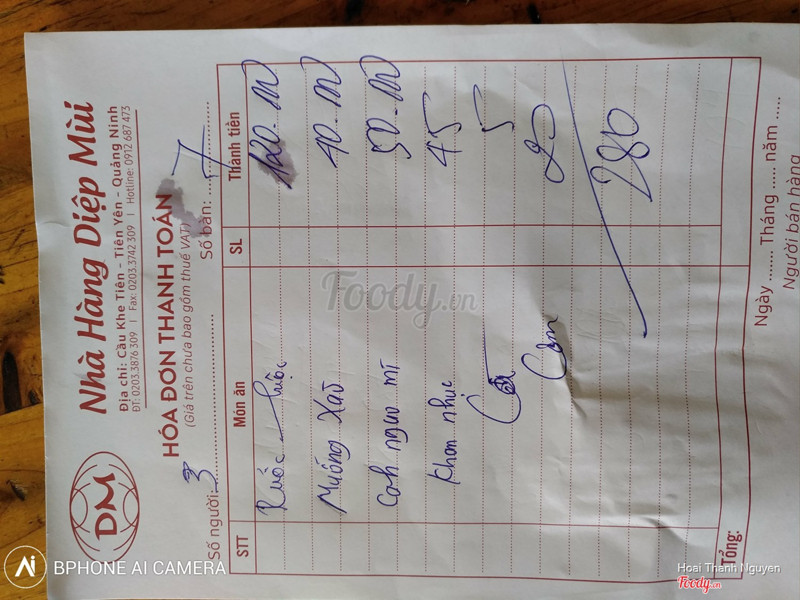 DM
Nhà Hàng Diệp Mùi
Địa chỉ: Cầu Khe Tiên - Tiên Yên - Quảng Ninh
ĐT: 0203.3876 309 | Fax: 0203.3742 309 | Hotline: 0912 687 473
HÓA ĐƠN THANH TOÁN
(Giá trên chưa bao gồm thuế VAT)
Số người: 3 Số bàn: 7
STT Món ăn SL Thành tiền
luộc 120
Muống Xào 40
Canh ngao mì 50
Khoai 45
5
Cơm 20
280
Tổng:
Ngày ....... Tháng ..... năm .....
Người bán hàng
Foody.vn
BPHONE AI CAMERA
Ai
Hoai Thanh Nguyen
Foody.vn